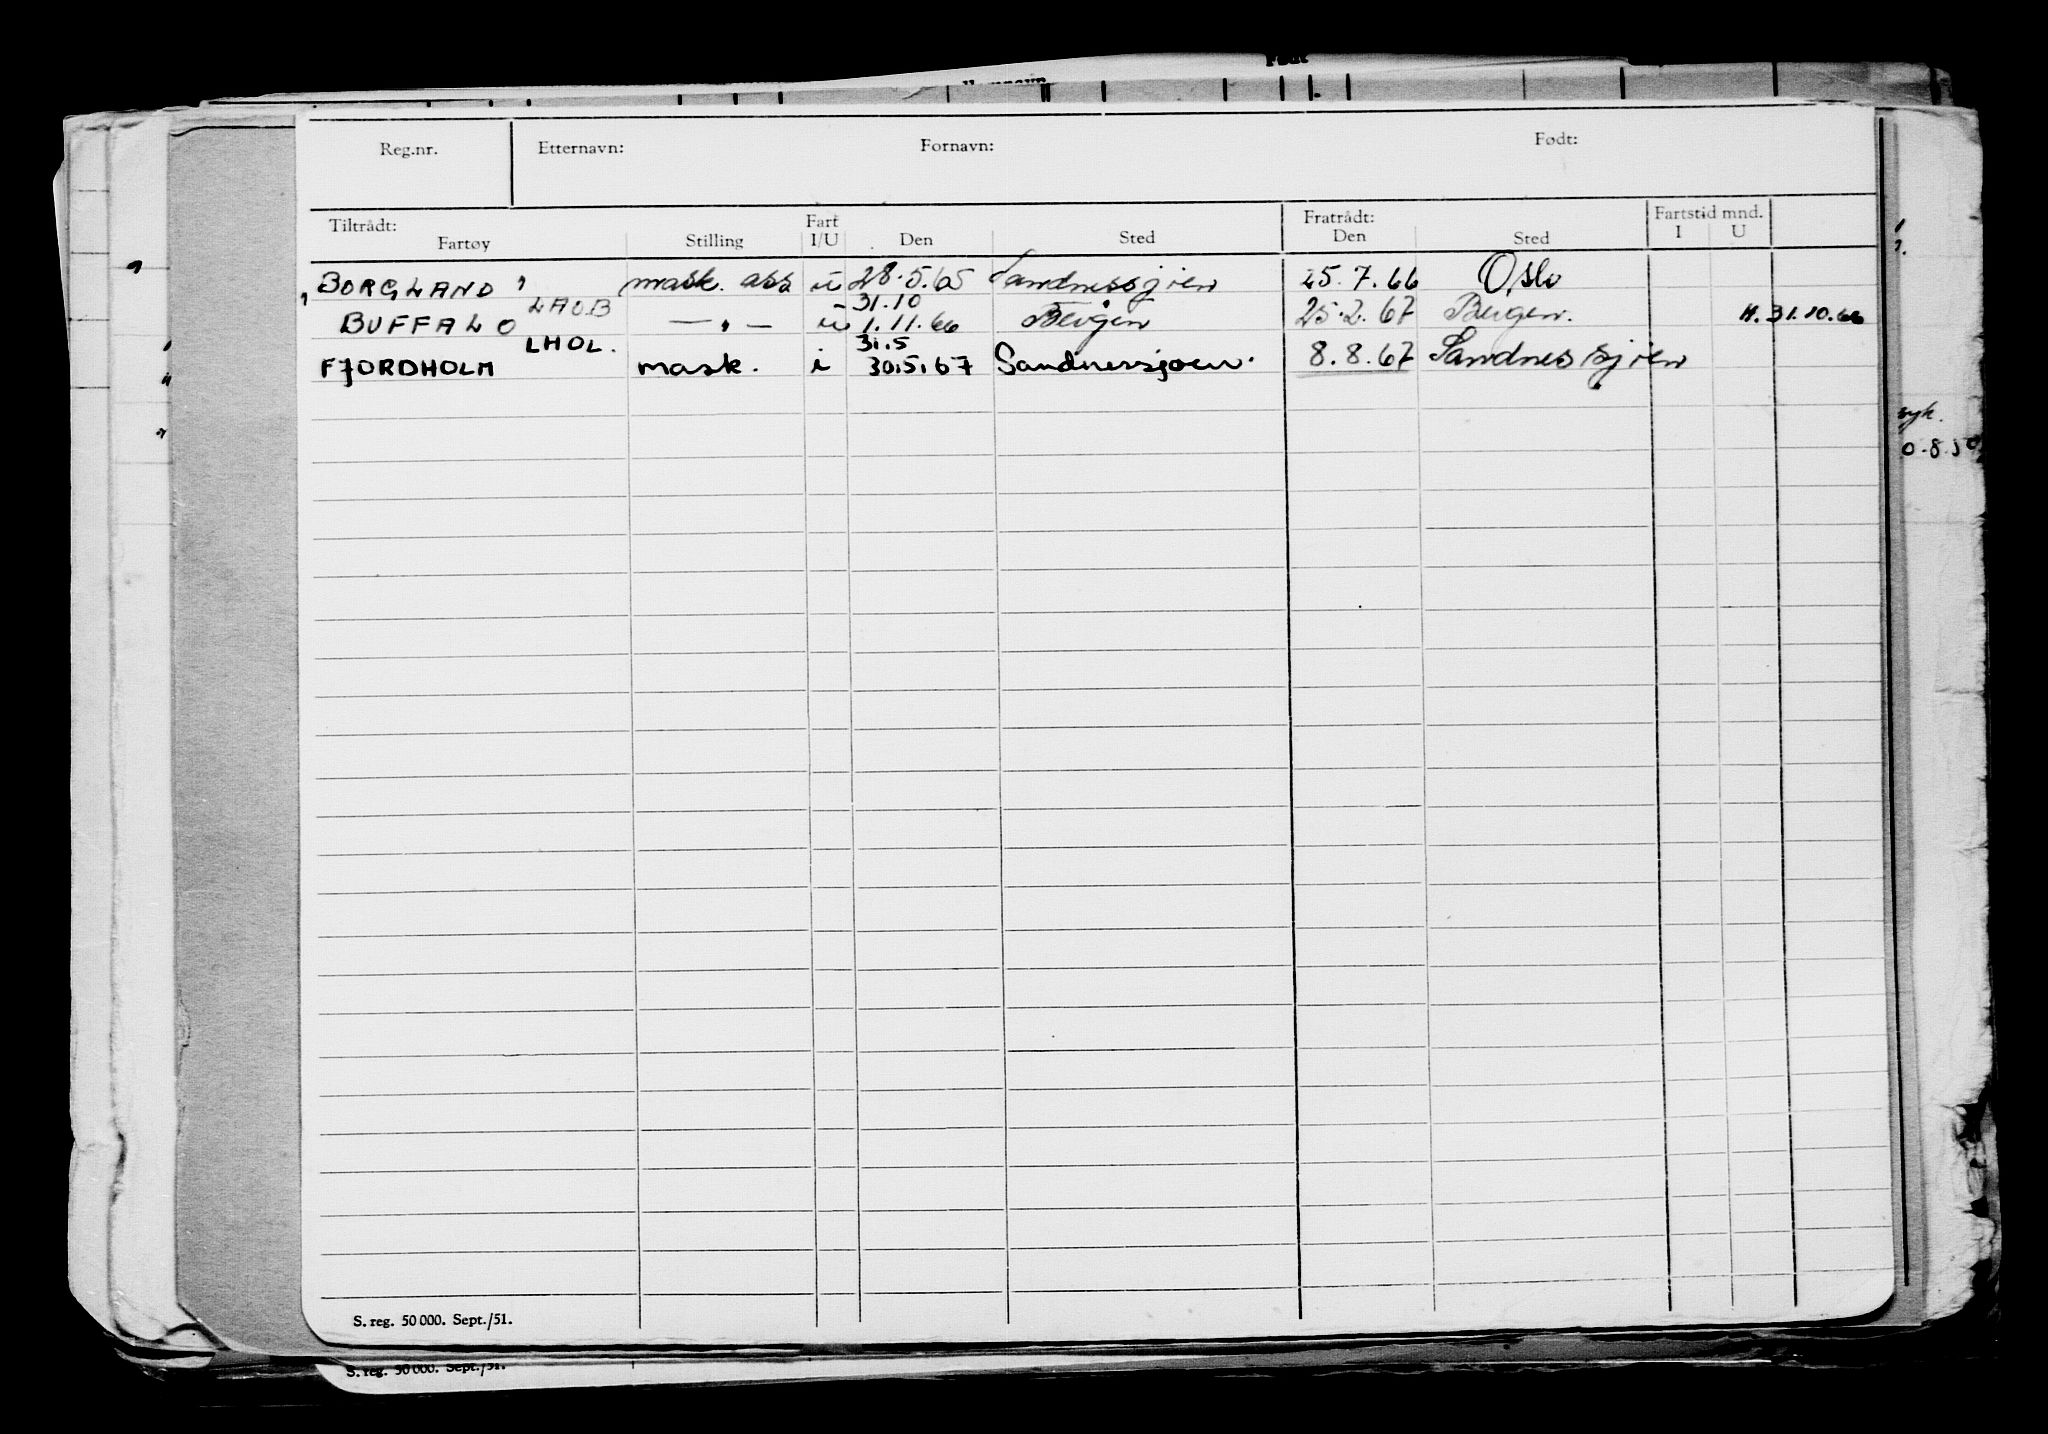 Født
Reg.nr. Etternavn: Fornavn: Født:
Tiltrådt: Fart Fratrådt: Fartstid mnd.
Fartøy Stilling I/U Den Sted Den Sted I U
BORGLAND mask. ass u 28.5.65 Sandnessjøen 25.7.66 Oslo
LAOB 31.10
BUFFALO — " — u 1.11.66 Bergen 25.2.67 Bergen. H. 31.10.66
LHOL. 31.5
FJORDHOLM mask. i 30.5.67 Sandnessjøen. 8.8.67 Sandnessjøen
S. reg. 50 000. Sept./51.
S. reg. 50 000. Sept./51.